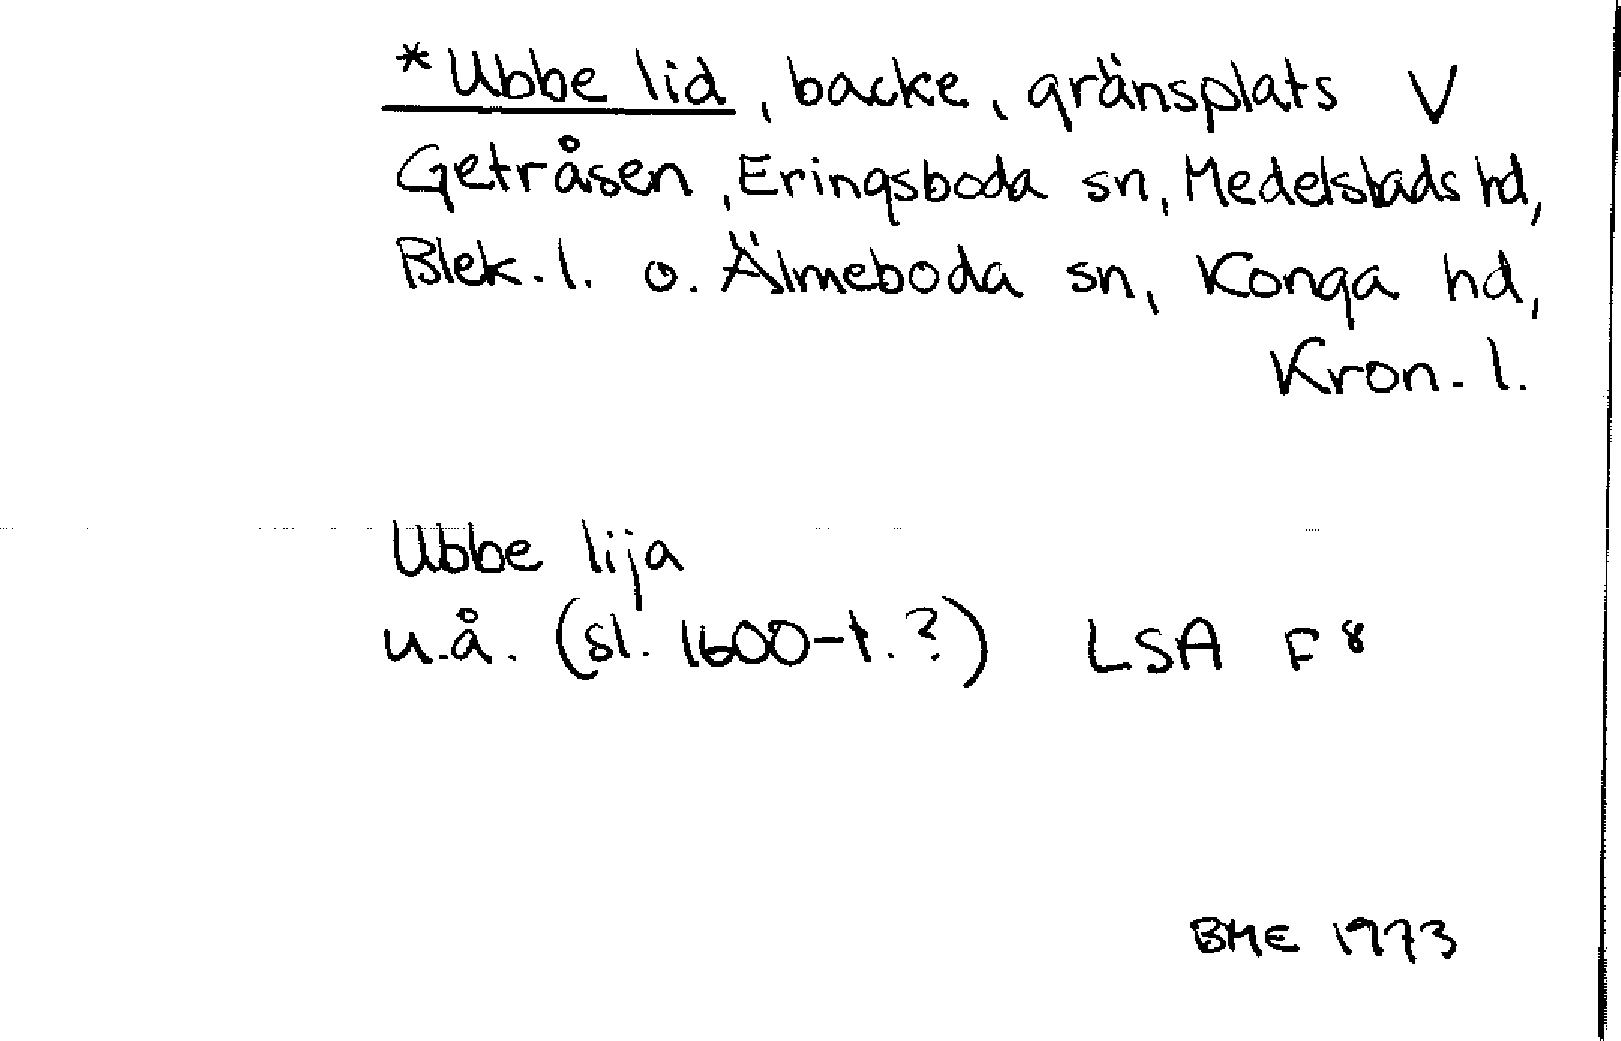 *Ubbe lid, backe, gränsplats V
Getråsen, Eringsboda sn, Medelstads hd,
Blek. l. o. Älmeboda sn, Konga hd,
Kron. l.
Ubbe lija
u.å. (sl. 1600-t.?) LSA F⁸
BME 1973